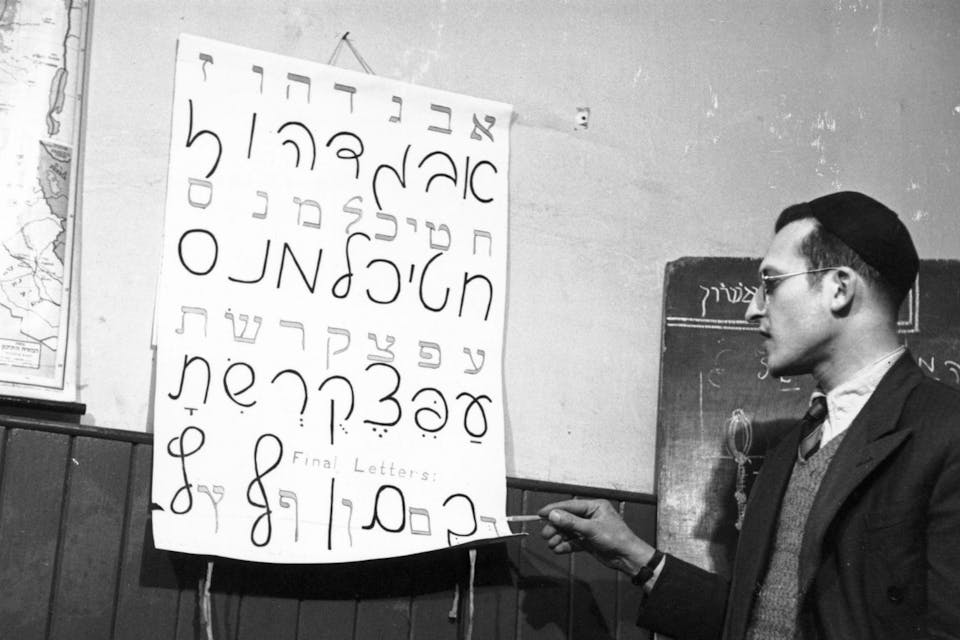 א ב ג ד ה ו ז
א ב ג ד ה ו ז
ח ט י כ ל מ נ ס
ח ט י כ ל מ נ ס
ע פ צ ק ר ש ת
עַ פֵּ צֶ קֻ רְ שִׁ תָ
Final Letters:
ך ך ם ם ן ן ף ף ץ ץ